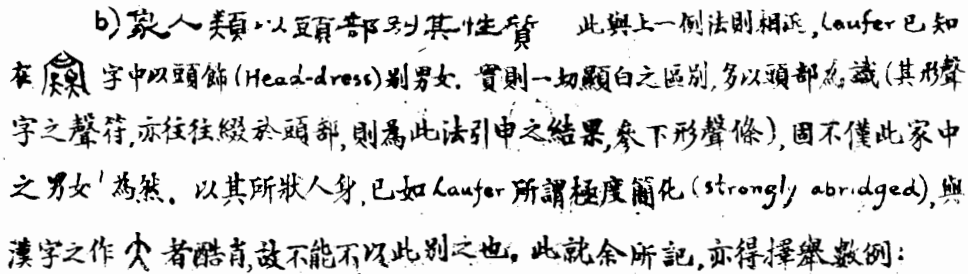 b) 家人類以頭部別其性質 此與上一例法則相近, Laufer 已知
在 字中以頭飾 (Head-dress) 別男女. 實則一切顯白之區別, 多以頭部為識 (其形聲
字之聲符, 亦往往綴於頭部, 則為此法引申之結果, 參下形聲條), 固不僅此家中
之男女為然. 以其所狀人身, 已如 Laufer 所謂極度簡化 (strongly abridged), 與
漢字之作 者酷肖, 故不能不以此別之也. 此就余所記, 亦得擇舉數例: